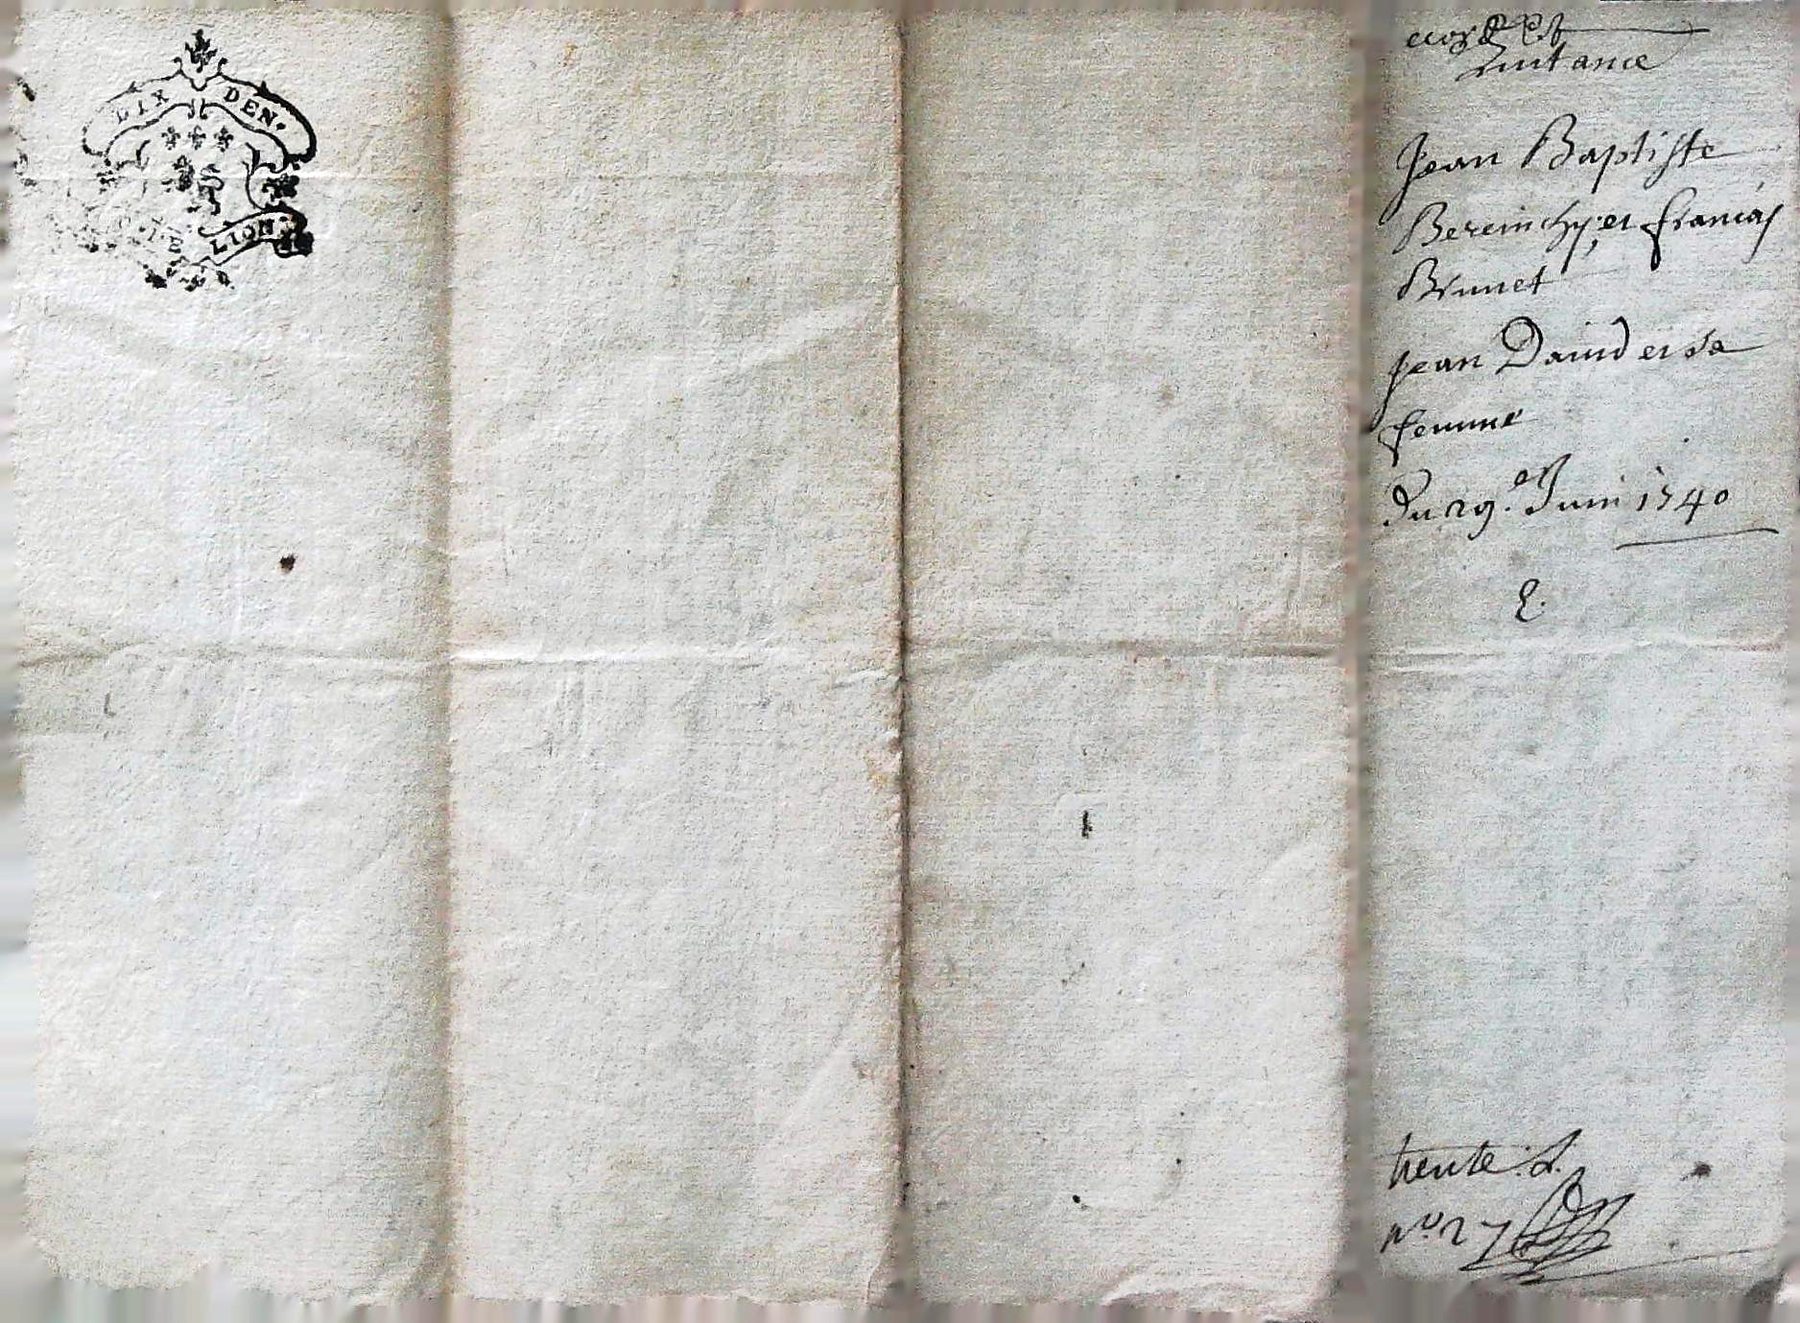 DIX DEN.
LION
et
quittance
Jean Baptiste
et francois
Brunet
Jean David et sa
femme
Du 29.e Juin 1740
trente
no. 27